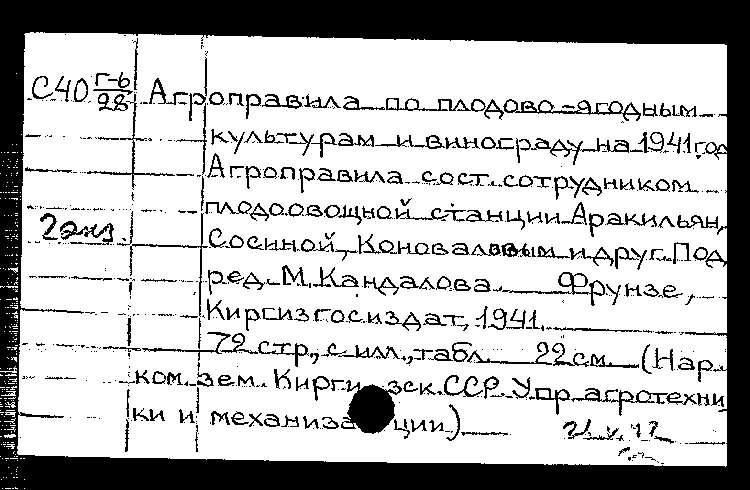 С40 г-6/28 Агроправила по плодово-ягодным
культурам и винограду на 1941 год
Агроправила сост. сотрудником
плодоовощной станции Аракильян,
2 экз. Сосиной, Коноваловым и друг. Под
ред. М. Кандалова. Фрунзе,
Киргизгосиздат, 1941.
72 стр., с илл., табл. 22 см. (Нар.
ком. зем. Киргизск. ССР. Упр. агротехни
ки и механизации)